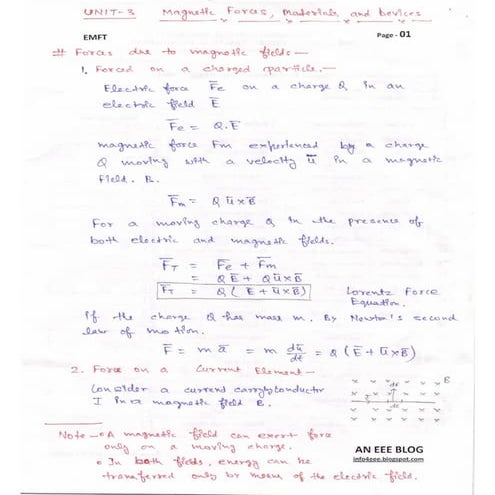 UNIT-3 Magnetic Forces, Materials and Devices
EMFT Page - 01
# Forces due to magnetic fields —
1. Forced on a charged particle. —
Electric force F̅e on a charge Q in an
electric field E̅
F̅e = Q.E̅
magnetic force Fm experienced by a charge
Q moving with a velocity u̅ in a magnetic
field. B.
F̅m = Q u̅ x B̅
For a moving charge Q in the presence of
both electric and magnetic fields.
F̅T = F̅e + F̅m
= Q E̅ + Q u̅ x B̅
F̅T = Q ( E̅ + u̅ x B̅ ) Lorentz Force
Equation.
If the charge Q has mass m. By Newton's second
law of motion.
F̅ = m a̅ = m du̅/dt = Q ( E̅ + u̅ x B̅ )
2. Force on a Current Element —
Consider a current carrying conductor
I in a magnetic field B.
B
I
Note — o A magnetic field can exert force
only on a moving charge.
o In both fields, energy can be
transferred only by means of the electric field.
AN EEE BLOG
info4eee.blogspot.com